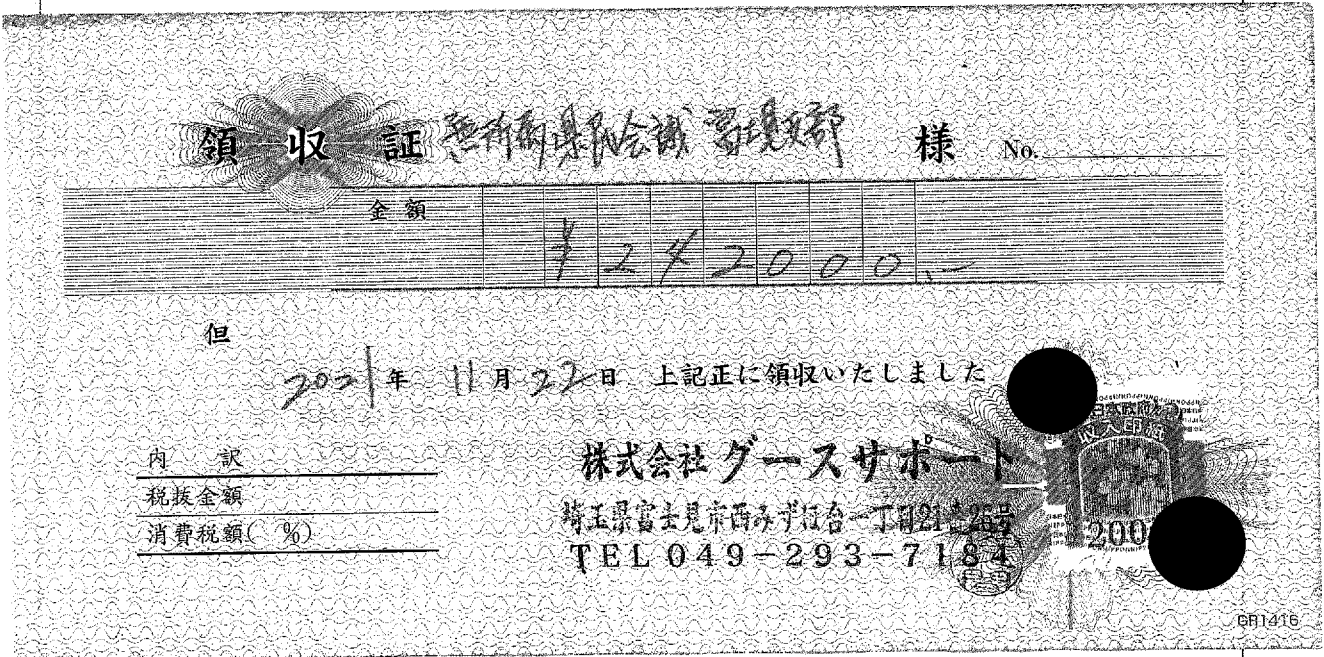 領収証 無所属県民会議 富士見支部 様 No.
金額 ¥242000.-
但
2021年 11月22日 上記正に領収いたしました
内訳
税抜金額
消費税額( %)
株式会社グースサポート
埼玉県富士見市西みずほ台一丁目21番26号
TEL 049-293-7184
収入印紙
200
GR1416